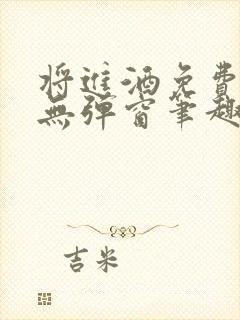 将进酒免费
无弹窗笔趣
吉米